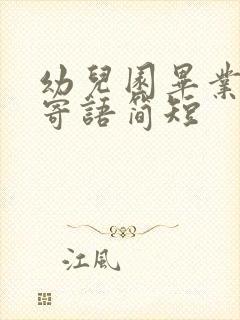 幼兒園畢業
寄語简短
江風